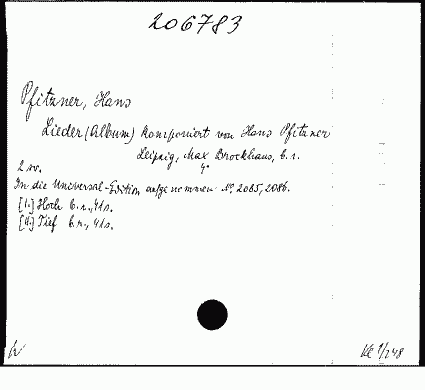 206783
Pfitzner, Hans
Lieder (Album) komponiert von Hans Pfitzner
Leipzig, Max Brockhaus, b. r.
4°
2 sv.
In die Universal-Edition aufgenommen No 2085, 2086.
[I.] Hoch b. r., 41 s.
[II.] Tief b. r., 41 s.
Kč 1/248